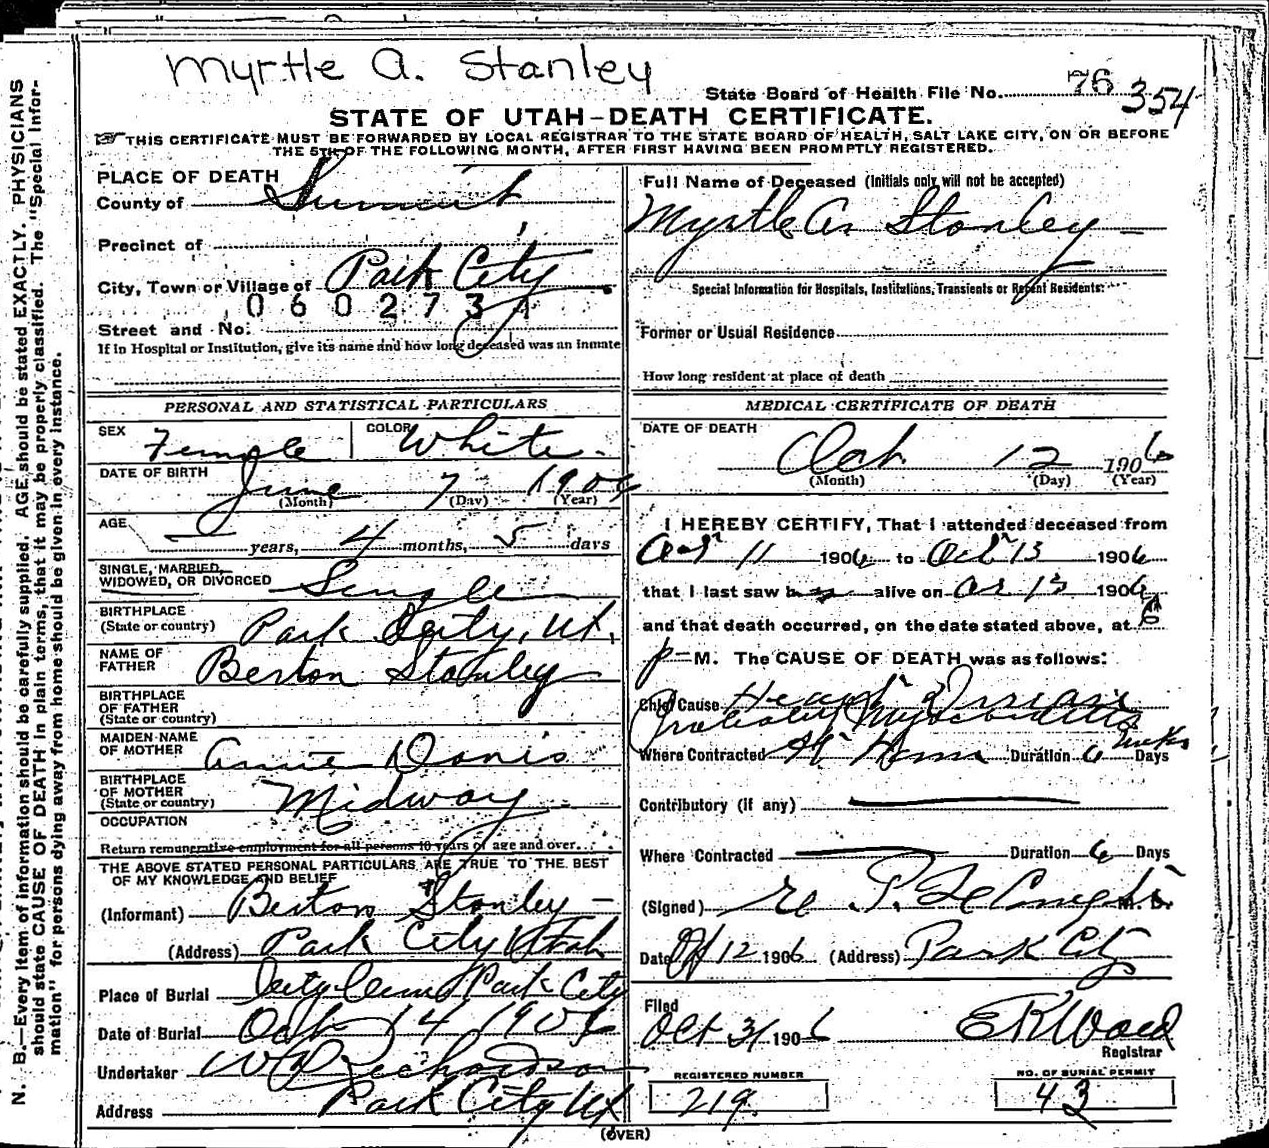 Myrtle A. Stanley
State Board of Health File No. 76 354
STATE OF UTAH-DEATH CERTIFICATE.
THIS CERTIFICATE MUST BE FORWARDED BY LOCAL REGISTRAR TO THE STATE BOARD OF HEALTH, SALT LAKE CITY, ON OR BEFORE
THE 5TH OF THE FOLLOWING MONTH, AFTER FIRST HAVING BEEN PROMPTLY REGISTERED.
PLACE OF DEATH
County of Summit
Precinct of
City, Town or Village of Park City
060273
Street and No.
If in Hospital or Institution, give its name and how long deceased was an inmate
Full Name of Deceased (Initials only will not be accepted)
Myrtle A. Stanley
Special Information for Hospitals, Institutions, Transients or Recent Residents:
Former or Usual Residence
How long resident at place of death
PERSONAL AND STATISTICAL PARTICULARS
SEX Female COLOR White
DATE OF BIRTH June 7 1906
(Month) (Day) (Year)
AGE years, 4 months, 5 days
SINGLE, MARRIED,
WIDOWED, OR DIVORCED Single
BIRTHPLACE
(State or country) Park City, Ut.
NAME OF
FATHER Berton Stanley
BIRTHPLACE
OF FATHER
(State or country)
MAIDEN NAME
OF MOTHER Annie Davis
BIRTHPLACE
OF MOTHER
(State or country) Midway
OCCUPATION
Return remunerative employment for all persons 10 years of age and over.
THE ABOVE STATED PERSONAL PARTICULARS ARE TRUE TO THE BEST
OF MY KNOWLEDGE AND BELIEF
(Informant) Berton Stanley
(Address) Park City Utah
Place of Burial City Cem Park City
Date of Burial Oct 14 1906
Undertaker W Richardson
Address Park City Ut
MEDICAL CERTIFICATE OF DEATH
DATE OF DEATH
Oct. 12 1906
(Month) (Day) (Year)
I HEREBY CERTIFY, That I attended deceased from
Oct 11 1906 to Oct 13 1906
that I last saw alive on Oct 13 1906
and that death occurred, on the date stated above, at 6
p M. The CAUSE OF DEATH was as follows:
Chief Cause Heart Disease
Probably Myocarditis
Where Contracted At Home Duration 6 weeks Days
Contributory (if any)
Where Contracted Duration 6 Days
(Signed) M. D.
Date Oct 12 1906 (Address) Park City
Filed
Oct 31 1906 E R Wood
Registrar
REGISTERED NUMBER
219.
NO. OF BURIAL PERMIT
43
(OVER)
N. B.—Every item of information should be carefully supplied. AGE should be stated EXACTLY. PHYSICIANS
should state CAUSE OF DEATH in plain terms, that it may be properly classified. The "Special Infor-
mation" for persons dying away from home should be given in every instance.